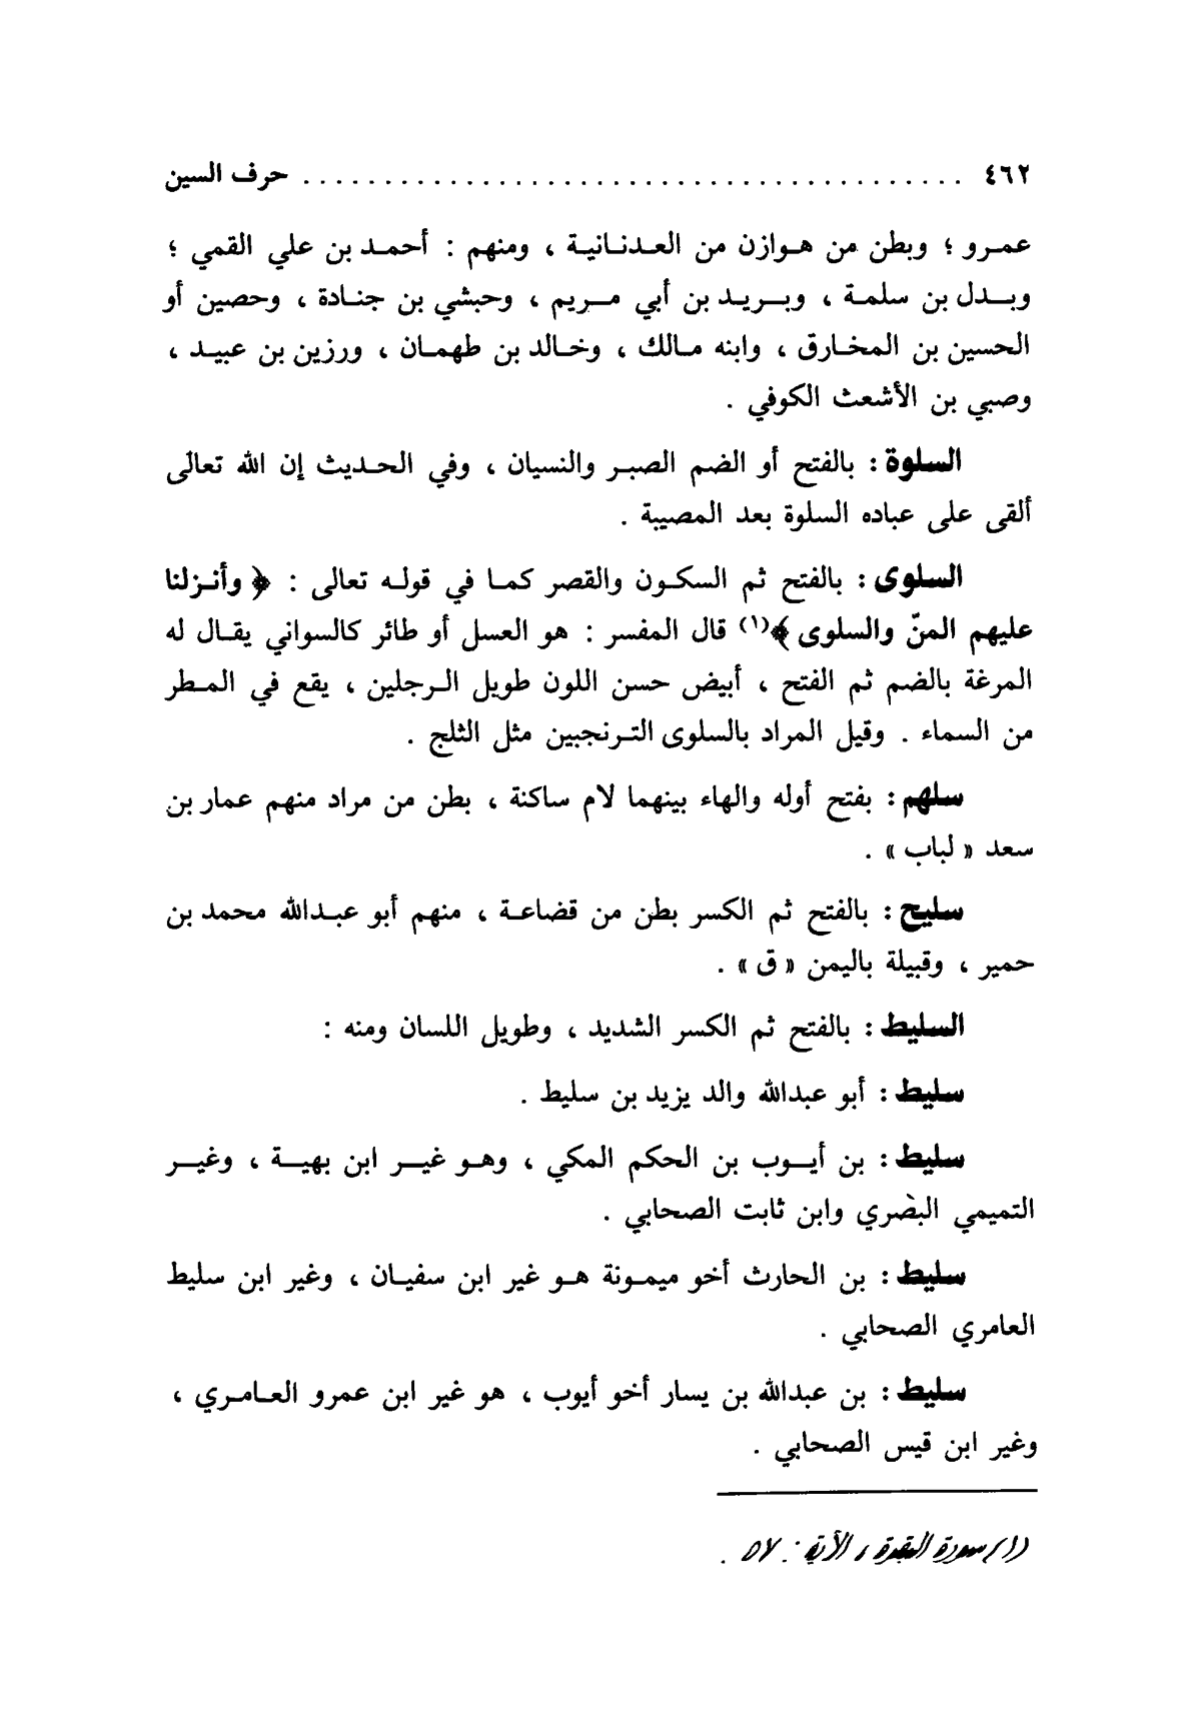 ٤٦٢ . . . . . . . . . . . . . . . . . . . . . . . . . . . . . . . . . . . . . . . حرف السين
عمرو ؛ وبطن من هوازن من العدنانية ، ومنهم : أحمد بن علي القمي ؛
وبدل بن سلمة ، وبريد بن أبي مريم ، وحبشي بن جنادة ، وحصين أو
الحسين بن المخارق ، وابنه مالك ، وخالد بن طهمان ، ورزين بن عبيد ،
وصبي بن الأشعث الكوفي .
السلوة : بالفتح أو الضم الصبر والنسيان ، وفي الحديث إن الله تعالى
ألقى على عباده السلوة بعد المصيبة .
السلوى : بالفتح ثم السكون والقصر كما في قوله تعالى : ﴿ وأنزلنا
عليهم المنّ والسلوى ﴾(١) قال المفسر : هو العسل أو طائر كالسواني يقال له
المرغة بالضم ثم الفتح ، أبيض حسن اللون طويل الرجلين ، يقع في المطر
من السماء . وقيل المراد بالسلوى الترنجبين مثل الثلج .
سلهم : بفتح أوله والهاء بينهما لام ساكنة ، بطن من مراد منهم عمار بن
سعد « لباب » .
سليح : بالفتح ثم الكسر بطن من قضاعة ، منهم أبو عبدالله محمد بن
حمير ، وقبيلة باليمن « ق » .
السليط : بالفتح ثم الكسر الشديد ، وطويل اللسان ومنه :
سليط : أبو عبدالله والد يزيد بن سليط .
سليط : بن أيوب بن الحكم المكي ، وهو غير ابن بهية ، وغير
التميمي البصري وابن ثابت الصحابي .
سليط : بن الحارث أخو ميمونة هو غير ابن سفيان ، وغير ابن سليط
العامري الصحابي .
سليط : بن عبدالله بن يسار أخو أيوب ، هو غير ابن عمرو العامري ،
وغير ابن قيس الصحابي .
(١) سورة البقرة ، الآية : ٥٧ .